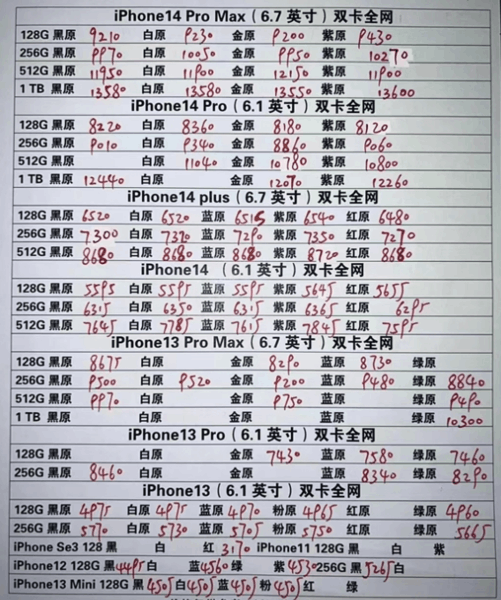 iPhone14 Pro Max（6.7 英寸）双卡全网
128G 黑原 9210 白原 9230 金原 9200 紫原 9430
256G 黑原 9970 白原 10050 金原 9950 紫原 10270
512G 黑原 11950 白原 11900 金原 12150 紫原 11900
1 TB 黑原 13580 白原 13580 金原 13550 紫原 13600
iPhone14 Pro（6.1 英寸）双卡全网
128G 黑原 8220 白原 8360 金原 8180 紫原 8120
256G 黑原 9010 白原 9340 金原 8860 紫原 9060
512G 黑原 白原 11040 金原 10780 紫原 10800
1 TB 黑原 12440 白原 金原 12070 紫原 12260
iPhone14 plus（6.7 英寸）双卡全网
128G 黑原 6520 白原 6520 蓝原 6515 紫原 6540 红原 6480
256G 黑原 7300 白原 7370 蓝原 7290 紫原 7350 红原 7270
512G 黑原 8680 白原 8680 蓝原 8680 紫原 8720 红原 8680
iPhone14 （6.1 英寸）双卡全网
128G 黑原 5595 白原 5595 蓝原 5595 紫原 5645 红原 5655
256G 黑原 6315 白原 6350 蓝原 6315 紫原 6365 红原 6295
512G 黑原 7645 白原 7785 蓝原 7615 紫原 7845 红原 7595
iPhone13 Pro Max（6.7 英寸）双卡全网
128G 黑原 8675 白原 金原 8290 蓝原 8730 绿原
256G 黑原 9500 白原 9520 金原 9200 蓝原 9480 绿原 8840
512G 黑原 9970 白原 金原 9750 蓝原 绿原 9490
1 TB 黑原 白原 金原 蓝原 绿原 10300
iPhone13 Pro（6.1 英寸）双卡全网
128G 黑原 白原 金原 7430 蓝原 7580 绿原 7460
256G 黑原 8460 白原 金原 蓝原 8340 绿原 8290
iPhone13（6.1 英寸）双卡全网
128G 黑原 4975 白原 4975 蓝原 4970 粉原 4965 红原 绿原 4960
256G 黑原 5770 白原 5730 蓝原 5705 粉原 5750 红原 绿原 5665
iPhone Se3 128 黑 白 红 3170 iPhone11 128G 黑 白 紫
iPhone12 128G 黑 4495 白 蓝 4560 绿 紫 4530 256G 黑 5265 白
iPhone13 Mini 128G 黑 4505 白 4505 蓝 4505 粉 4505 红 绿